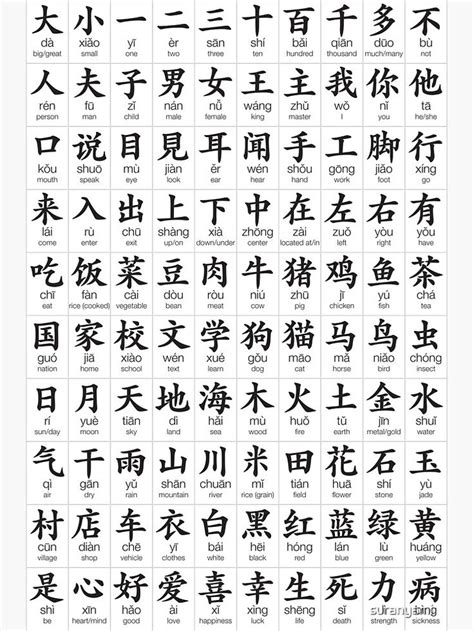 大 小 一 二 三 十 百 千 多 不
dà xiǎo yī èr sān shí bǎi qiān duō bù
big/great small one two three ten hundred thousand much/many not
人 夫 子 男 女 王 主 我 你 他
rén fū zǐ nán nǚ wáng zhǔ wǒ nǐ tā
person man child male female king master I you he/she
口 说 目 見 耳 闻 手 工 脚 行
kǒu shuō mù jiàn ěr wén shǒu gōng jiǎo xíng
mouth speak eye look ear hear hand work foot go
来 入 出 上 下 中 在 左 右 有
lái rù chū shàng xià zhōng zài zuǒ yòu yǒu
come enter exit up/on down/under center located at/in left right have
吃 饭 菜 豆 肉 牛 猪 鸡 鱼 茶
chī fàn cài dòu ròu niú zhū jī yú chá
eat rice (cooked) vegetable bean meat cow pig chicken fish tea
国 家 校 文 学 狗 猫 马 鸟 虫
guó jiā xiào wén xué gǒu māo mǎ niǎo chóng
nation home school text learn dog cat horse bird insect
日 月 天 地 海 木 火 土 金 水
rí yuè tiān dì hǎi mù huǒ tǔ jīn shuǐ
sun/day moon sky land sea wood fire earth metal/gold water
气 干 雨 山 川 米 田 花 石 玉
qì gān yǔ shān chuān mǐ tián huā shí yù
air dry rain mountain river rice (grain) field flower stone jade
村 店 车 衣 白 黑 红 蓝 绿 黄
cūn diàn chē yī bái hēi hóng lán lǜ huáng
village shop vehicle clothes white black red blue green yellow
是 心 好 爱 喜 幸 生 死 力 病
shì xīn hǎo ài xǐ xìng shēng sǐ lì bìng
be heart/mind good love happiness luck life death strength